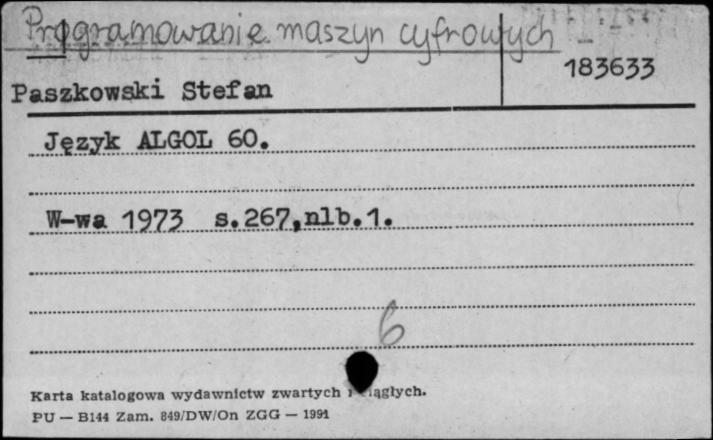 Programowanie maszyn cyfrowych
183633
Paszkowski Stefan
Język ALGOL 60.
W-wa 1973 s.267,nlb.1.
6
Karta katalogowa wydawnictw zwartych i ciągłych.
PU — B144 Zam. 849/DW/On ZGG — 1991